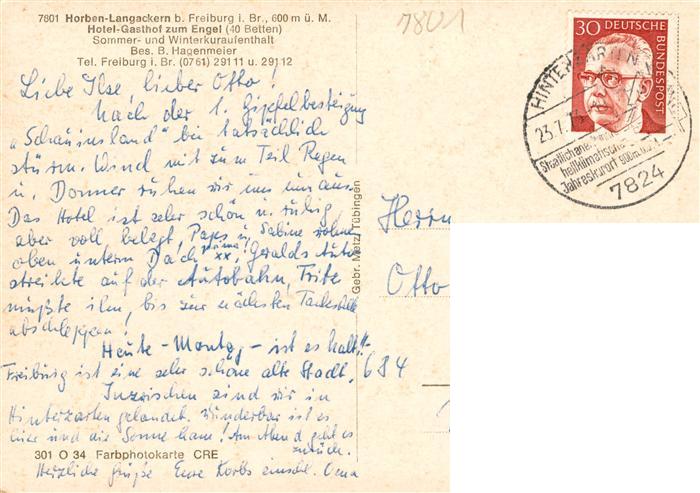 7801 Horben-Langackern b. Freiburg i. Br., 600 m ü. M.
Hotel-Gasthof zum Engel (40 Betten)
Sommer- und Winterkuraufenthalt
Bes. B. Hagenmeier
Tel. Freiburg i. Br. (0761) 29111 u. 29112
7801
30 DEUTSCHE BUNDESPOST
HINTERZARTEN
23.7.
Staatlich
heilklimatischer
Jahreskurort
7824
Liebe Ilse, lieber Otto!
Nach der 1. Gipfelbesteigung
"Schauinsland" bei tatsächlich
stürm. Wind mit zum Teil Regen
u. Donner ruhen wir uns nun aus.
Das Hotel ist sehr schön u. ruhig
aber voll belegt, Papes u. Sabine wohnen
oben unterm Dach prima! xx, Geralds Auto
streikte auf der Autobahn, Fritz
mußte ihn, bis zur nächsten Tankstelle
abschleppen!
Heute - Montag - ist es kalt!!
Freiburg ist eine sehr schöne alte Stadt.
Inzwischen sind wir in
Hinterzarten gelandet. Wunderbar ist es
hier und die Sonne kam! Am Abend geht es
zurück.
Herzliche Grüße Eure Korbs einschl. Oma
Gebr. Metz, Tübingen
Herrn
Otto
684
301 O 34 Farbphotokarte CRE